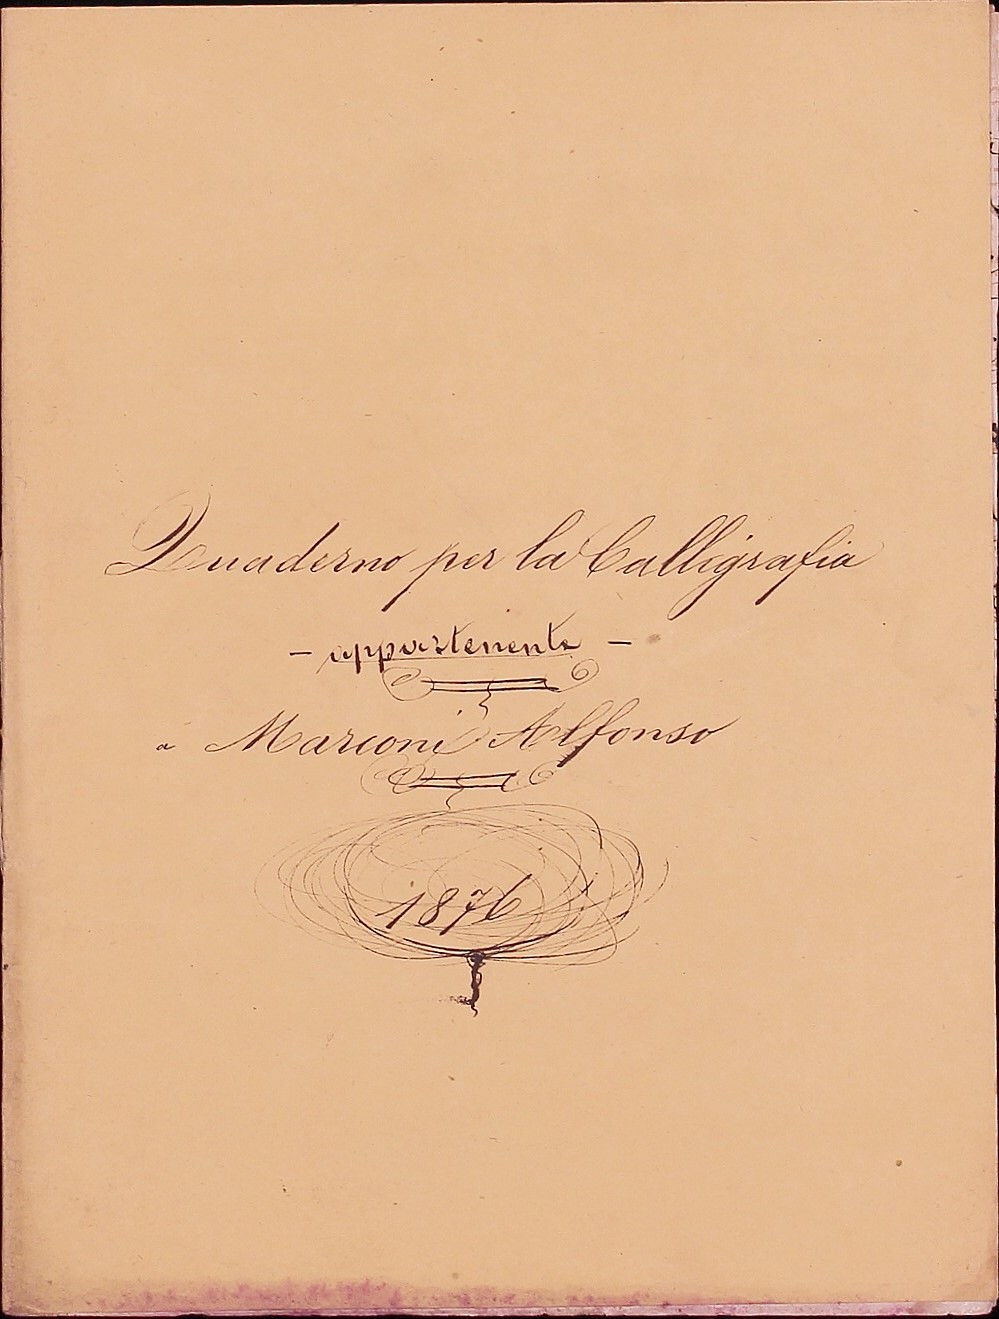 Quaderno per la Calligrafia
- appartenente -
a Marconi Alfonso
1876